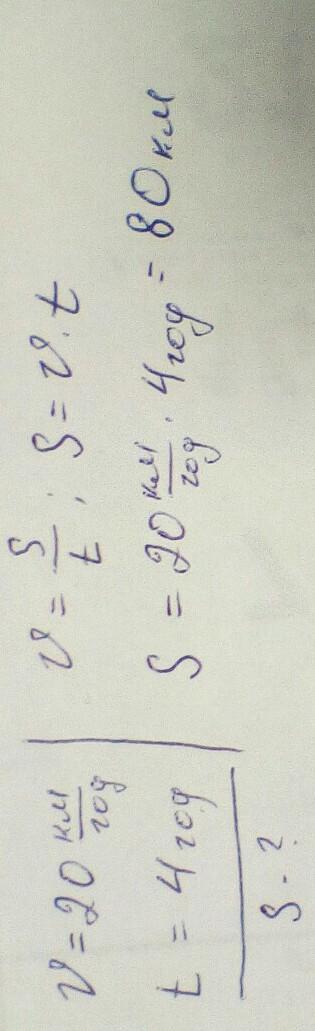 v = 20 км/год
t = 4 год
S - ?
v = S/t ; S = v · t
S = 20 км/год · 4 год = 80 км